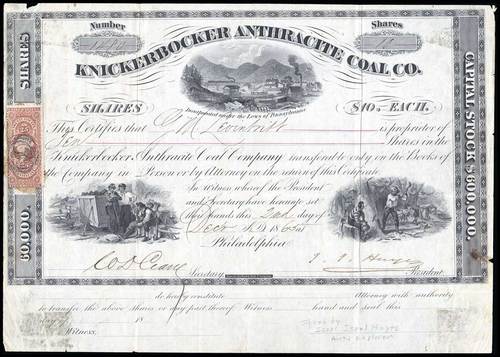 Number Shares
KNICKERBOCKER ANTHRACITE COAL CO.
Incorporated under the Laws of Pennsylvania
SHARES $10.- EACH.
This Certifies that is proprietor of
Ten Shares in the
Knickerbocker Anthracite Coal Company transferable only on the Books of
the Company in Person or by Attorney on the return of this Certificate.
In Witness whereof the President
and Secretary have hereunto set
their hands this 2nd day of
Decr AD 186
Philadelphia
Secretary President
do hereby constitute Attorney with authority
to transfer the above Shares or any part thereof Witness hand and seal this
18
Witness.
SHARES
60,000.
CAPITAL STOCK $600,000.
Signed by
Isaac Israel Hayes
Arctic explorer